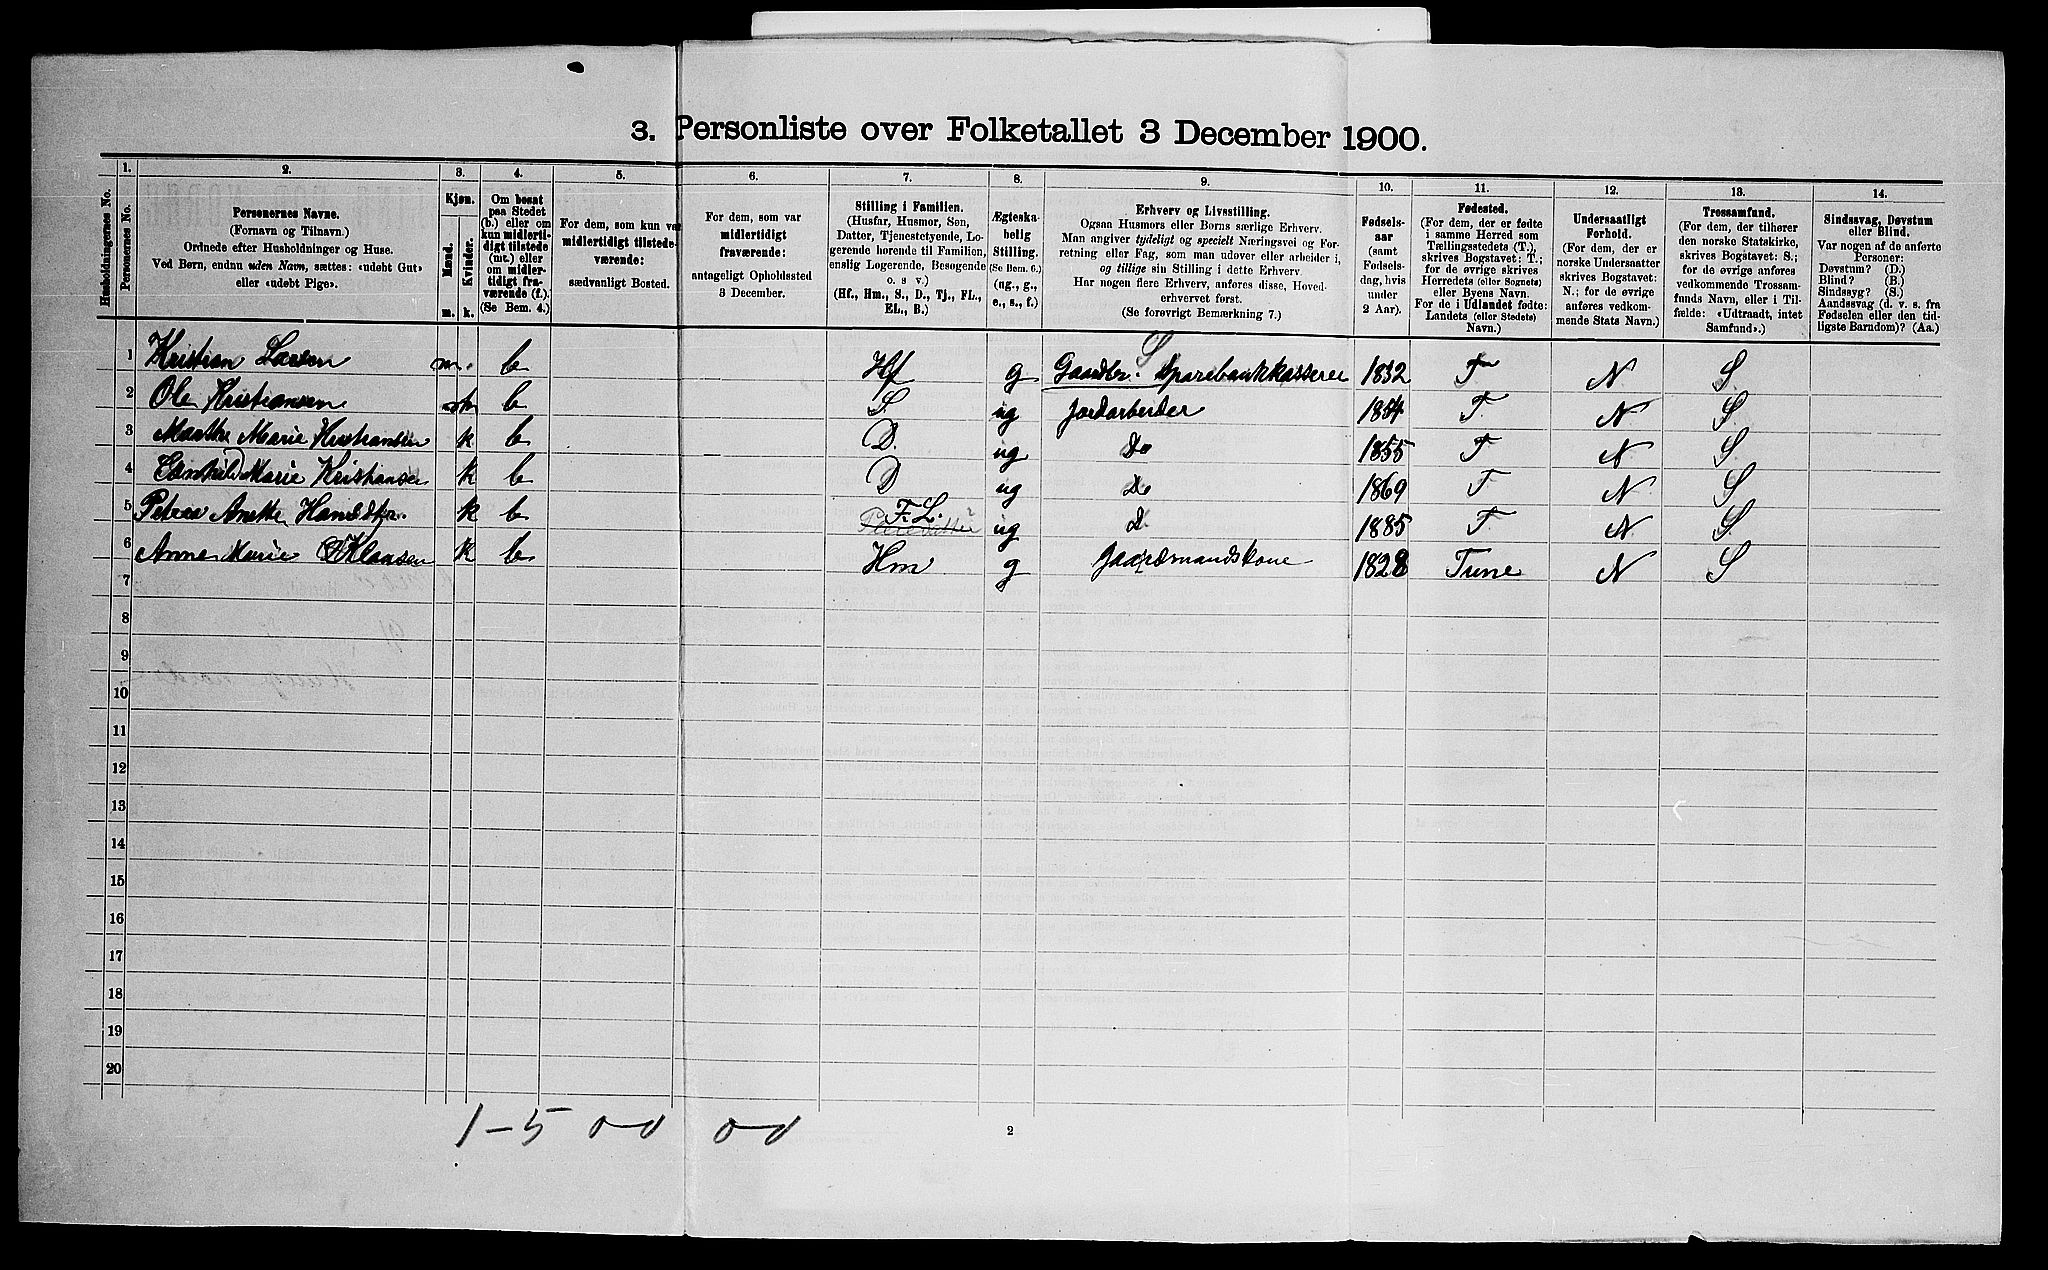 3. Personliste over Folketallet 3 December 1900.
1. 2. 3. 4. 5. 6. 7. 8. 9. 10. 11. 12. 13. 14.
Husholdningernes No.
Personernes No.
Personernes Navne.
(Fornavn og Tilnavn.)
Ordnede efter Husholdninger og Huse.
Ved Børn, endnu uden Navn, sættes: «udøbt Gut»
eller «udøbt Pige».
Kjøn.
Mænd.
Kvinder.
m. k.
Om bosat
paa Stedet
(b.) eller om
kun midlerti-
digt tilstede
(mt.) eller
om midler-
tidigt fra-
værende (f.).
(Se Bem. 4.)
For dem, som kun var
midlertidigt tilstede-
værende:
sædvanligt Bosted.
For dem, som var
midlertidigt
fraværende:
antageligt Opholdssted
3 December.
Stilling i Familien.
(Husfar, Husmor, Søn,
Datter, Tjenestetyende, Lo-
gerende hørende til Familien,
enslig Logerende, Besøgende
o. s v.)
(Hf., Hm., S., D., Tj., FL.,
EL., B.)
Ægteska-
belig
Stilling.
(Se Bem. 6.)
(ug., g.,
e., s., f.)
Erhverv og Livsstilling.
Ogsaa Husmors eller Børns særlige Erhverv.
Man angiver tydeligt og specielt Næringsvei og For-
retning eller Fag, som man udøver eller arbeider i,
og tillige sin Stilling i dette Erhverv.
Har nogen flere Erhverv, anføres disse, Hoved-
erhvervet først.
(Se forøvrigt Bemærkning 7.)
Fødsels-
aar
(samt
Fødsels-
dag, hvis
under
2 Aar).
Fødested.
(For dem, der er fødte
i samme Herred som
Tællingsstedets (T.),
skrives Bogstavet: T.;
for de øvrige skrives
Herredets (eller Sognets)
eller Byens Navn.
For de i Udlandet fødte:
Landets (eller Stedets)
Navn.)
Undersaatligt
Forhold.
(For dem, der er
norske Undersaatter
skrives Bogstavet:
N.; for de øvrige
anføres vedkom-
mende Stats Navn.)
Trossamfund.
(For dem, der tilhører
den norske Statskirke,
skrives Bogstavet: S.;
for de øvrige anføres
vedkommende Trossam-
funds Navn, eller i Til-
fælde: «Udtraadt, intet
Samfund».)
Sindssvag, Døvstum
eller Blind.
Var nogen af de anførte
Personer:
Døvstum? (D.)
Blind? (B.)
Sindssyg? (S.)
Aandssvag (d. v. s. fra
Fødselen eller den tid-
ligste Barndom)? (Aa.)
1 Kristian Larsen m. b Hf g Gaardbr. S Sparebankkasserer 1832 T N S.
2 Ole Kristiansen m b S. ug Jordarbeider 1854 T. N S.
3 Marthe Marie Kristiansen k b D. ug Do 1855 T N S.
4 Marie Kristiansen k b D ug Do 1869 T N. S
5 Petrea Anette Hansdtr. k b F. L. ug D. 1885 T. N S.
6 Anne Marie Klausen k b Hm g Gaardmandskone 1828 Tune N S
7
8
9
10
11
12
13
14
15
16
17
18
19
20
1-5 0-0 0-0
2